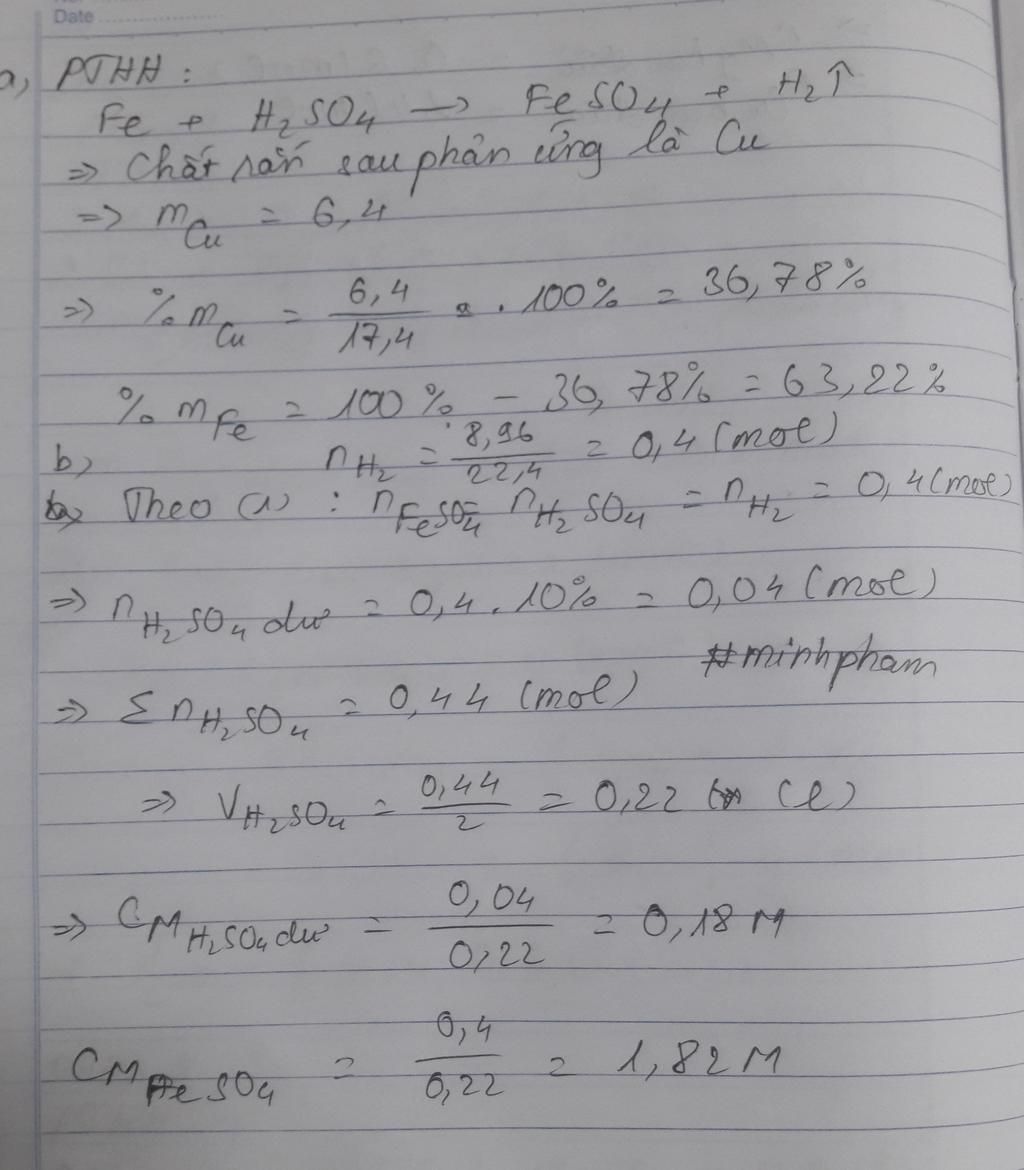 Date
a, PTHH :
Fe + H₂SO₄ → FeSO₄ + H₂↑
=> Chất rắn sau phản ứng là Cu
=> m_Cu = 6,4
=> %m_Cu = 6,4/17,4 . 100% = 36,78%
%m_Fe = 100% - 36,78% = 63,22%
b) n_H₂ = 8,96/22,4 = 0,4 (mol)
Theo (1) : n_FeSO₄ = n_H₂SO₄ = n_H₂ = 0,4 (mol)
=> n_H₂SO₄ dư = 0,4 . 10% = 0,04 (mol)
#minhpham
=> Σ n_H₂SO₄ = 0,44 (mol)
=> V_H₂SO₄ = 0,44/2 = 0,22 (l)
=> CM_H₂SO₄ dư = 0,04/0,22 = 0,18 M
CM_FeSO₄ = 0,4/0,22 = 1,82 M